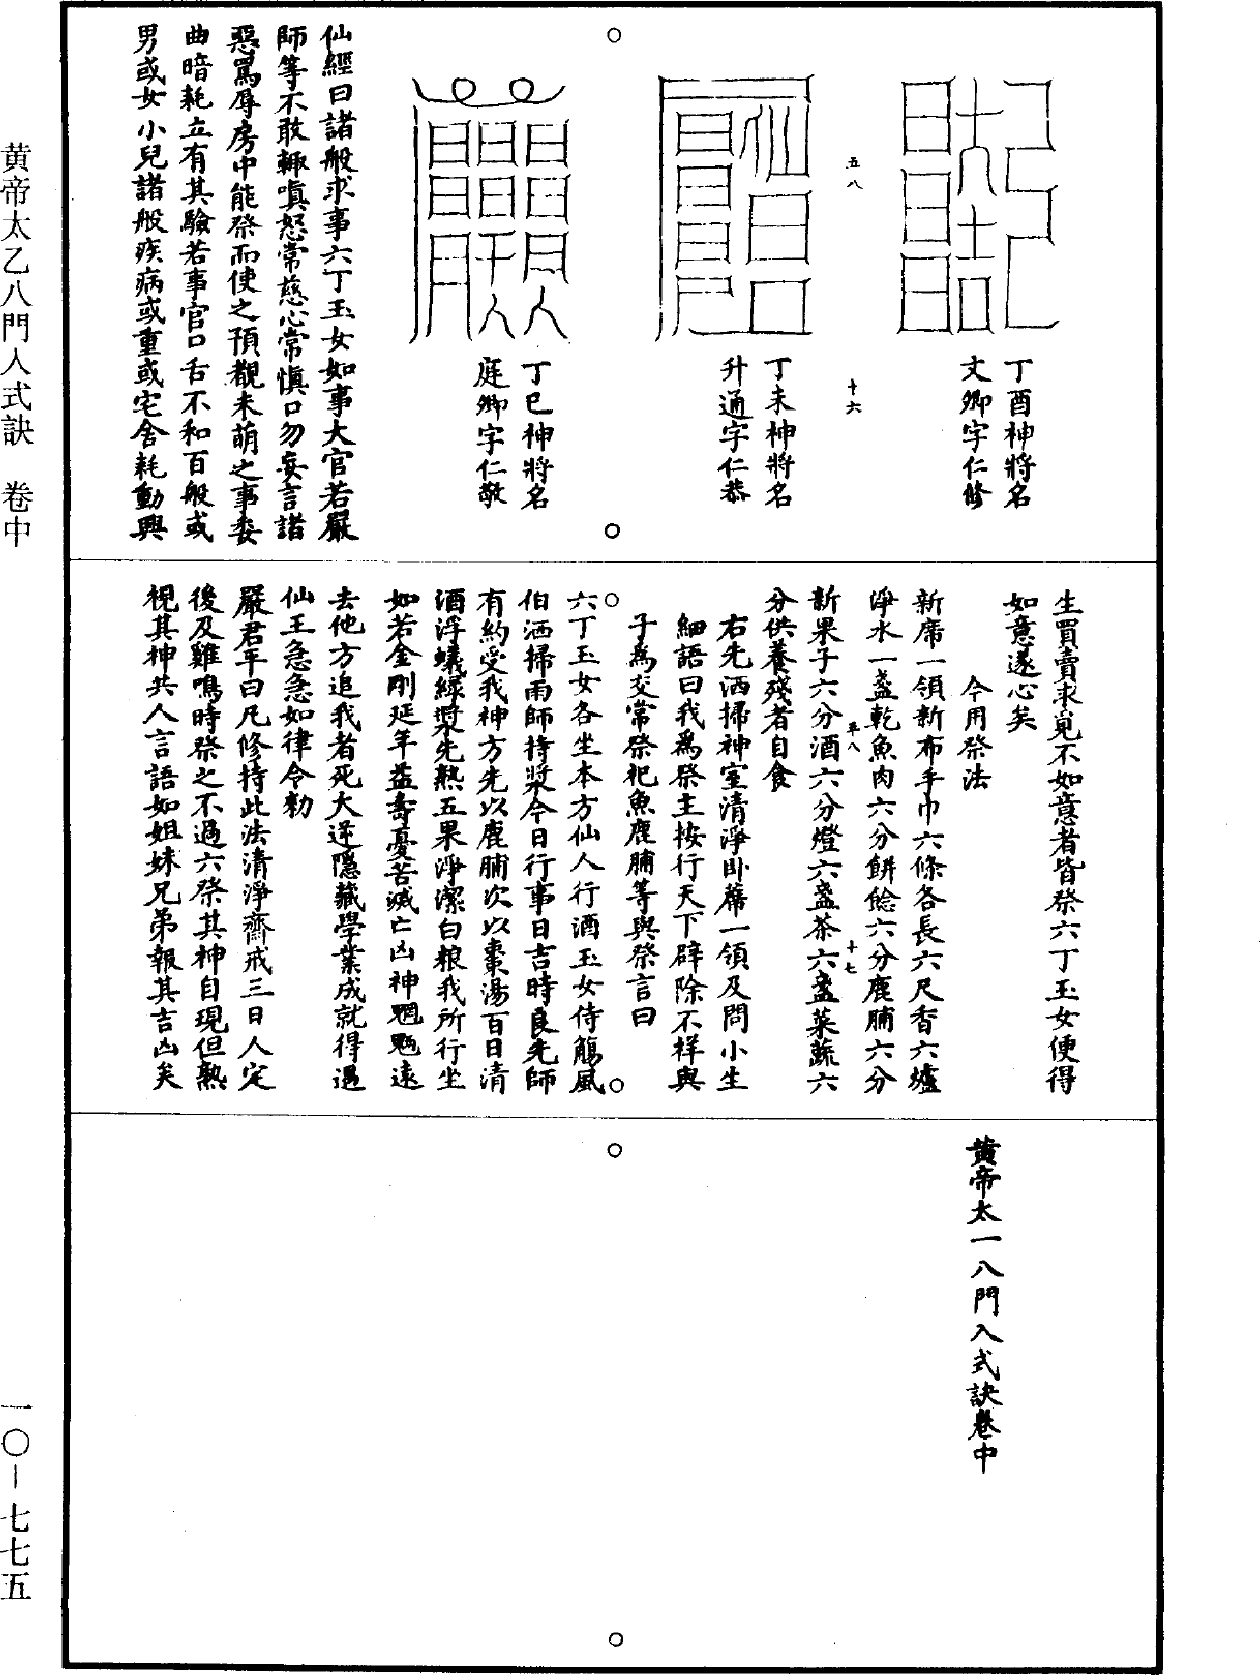 丁酉神將名
文卿字仁修
五八
十六
丁未神將名
升通字仁恭
丁巳神將名
庭卿字仁敬
仙經曰諸般求事六丁玉女如事大官若嚴
師等不敢輙嗔怒常慈心常慎口勿妄言諸
惡罵辱房中能祭而使之預覩未萌之事委
曲暗耗立有其驗若事官口舌不和百般或
男或女小兒諸般疾病或重或宅舍耗動興
生買賣求覓不如意者皆祭六丁玉女便得
如意遂心矣
今用祭法
新席一領新布手巾六條各長六尺香六爐
淨水一盞乾魚肉六分餅餤六分鹿脯六分
新果子六分酒六分燈六盞茶六盞菜蔬六
五八
十七
分供養殘者自食
右先洒掃神室清淨卧蓆一領及問小生
細語曰我爲祭主按行天下辟除不祥與
子爲交常祭祀魚鹿脯等與祭言曰
六丁玉女各坐本方仙人行酒玉女侍觴風
伯洒掃雨師待漿今日行事日吉時良先師
有約受我神方先以鹿脯次以棗湯百日清
酒浮蟻緑漿先熟五果淨潔白粮我所行坐
如若金剛延年益壽憂苦滅亡凶神魍魎遠
去他方追我者死大逆隱藏學業成就得遇
仙王急急如律令勑
嚴君平曰凡修持此法清淨齋戒三日人定
後及雞鳴時祭之不過六祭其神自現但熟
視其神共人言語如姐妹兄弟報其吉凶矣
黄帝太一八門入式訣卷中
黄帝太乙八門入式訣　卷中
一〇—七七五